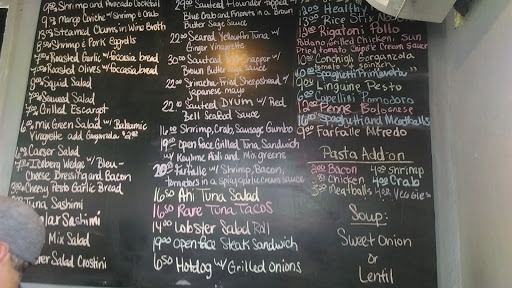 Shrimp and Avocado Cocktail
9.00 Mango Ceviche w/ Shrimp & Crab
Steamed Clams in Wine Broth
Shrimp & Pork Eggrolls
7.00 Roasted Garlic w/ Foccasia bread
Roasted Olives w/ Foccasia bread
Squid Salad
Seaweed Salad
Grilled Escargot
6.00 Mix Green Salad w/ Balsamic
Vinegrette add Gorgonzola
6.00 Caesar Salad
7.00 Iceberg Wedge w/ Bleu-
Cheese Dressing and Bacon
Cheesy Pesto Garlic Bread
Tuna Sashimi
Sashimi
Mix Salad
Salad Crostini
29.00 Sauteed Flounder topped w/
Blue Crab and Pimento in a Brown
Butter Sage Sauce
22.00 Seared Yellowfin Tuna w/
Ginger Vinagrette
30.00 Sauteed Snapper w/
Brown Butter Sage Sauce
22.00 Sriracha-Fried Sheepshead w/
Japanese mayo
22.00 Sauted Drum w/ Red
Bell Seafood Sauce
16.00 Shrimp, Crab, Sausage Gumbo
19.00 open Face Grilled Tuna Sandwich
w/ Keylime Aioli and Mix greens
20.00 Farfalle w/ Shrimp, Bacon,
Tomatoes in a spicy garlic cream sauce
16.50 Ahi Tuna Salad
16.50 Rare Tuna Tacos
14.00 Lobster Salad Roll
19.00 open Face Steak Sandwich
6.50 Hotdog w/ Grilled Onions
Healthy
13.00 Rice Stix Noodles
12.00 Rigatoni Pollo
Poblano, Grilled Chicken, Sun
Dried tomato Chipotle Cream Sauce
10.00 Conchigli Gorgonzola
tomato & spinach
Spaghetti Primavera
9.00 Linguine Pesto
Capellini Pomodoro
12.00 Penne Bolognese
16.00 Spaghetti and Meatballs
9.00 Farfalle Alfredo
Pasta Add-on
2.00 Bacon 4.00 Shrimp
3.00 Chicken 4.00 Crab
3.00 Meatballs 4.00 Veggies
Soup:
Sweet Onion
or
Lentil